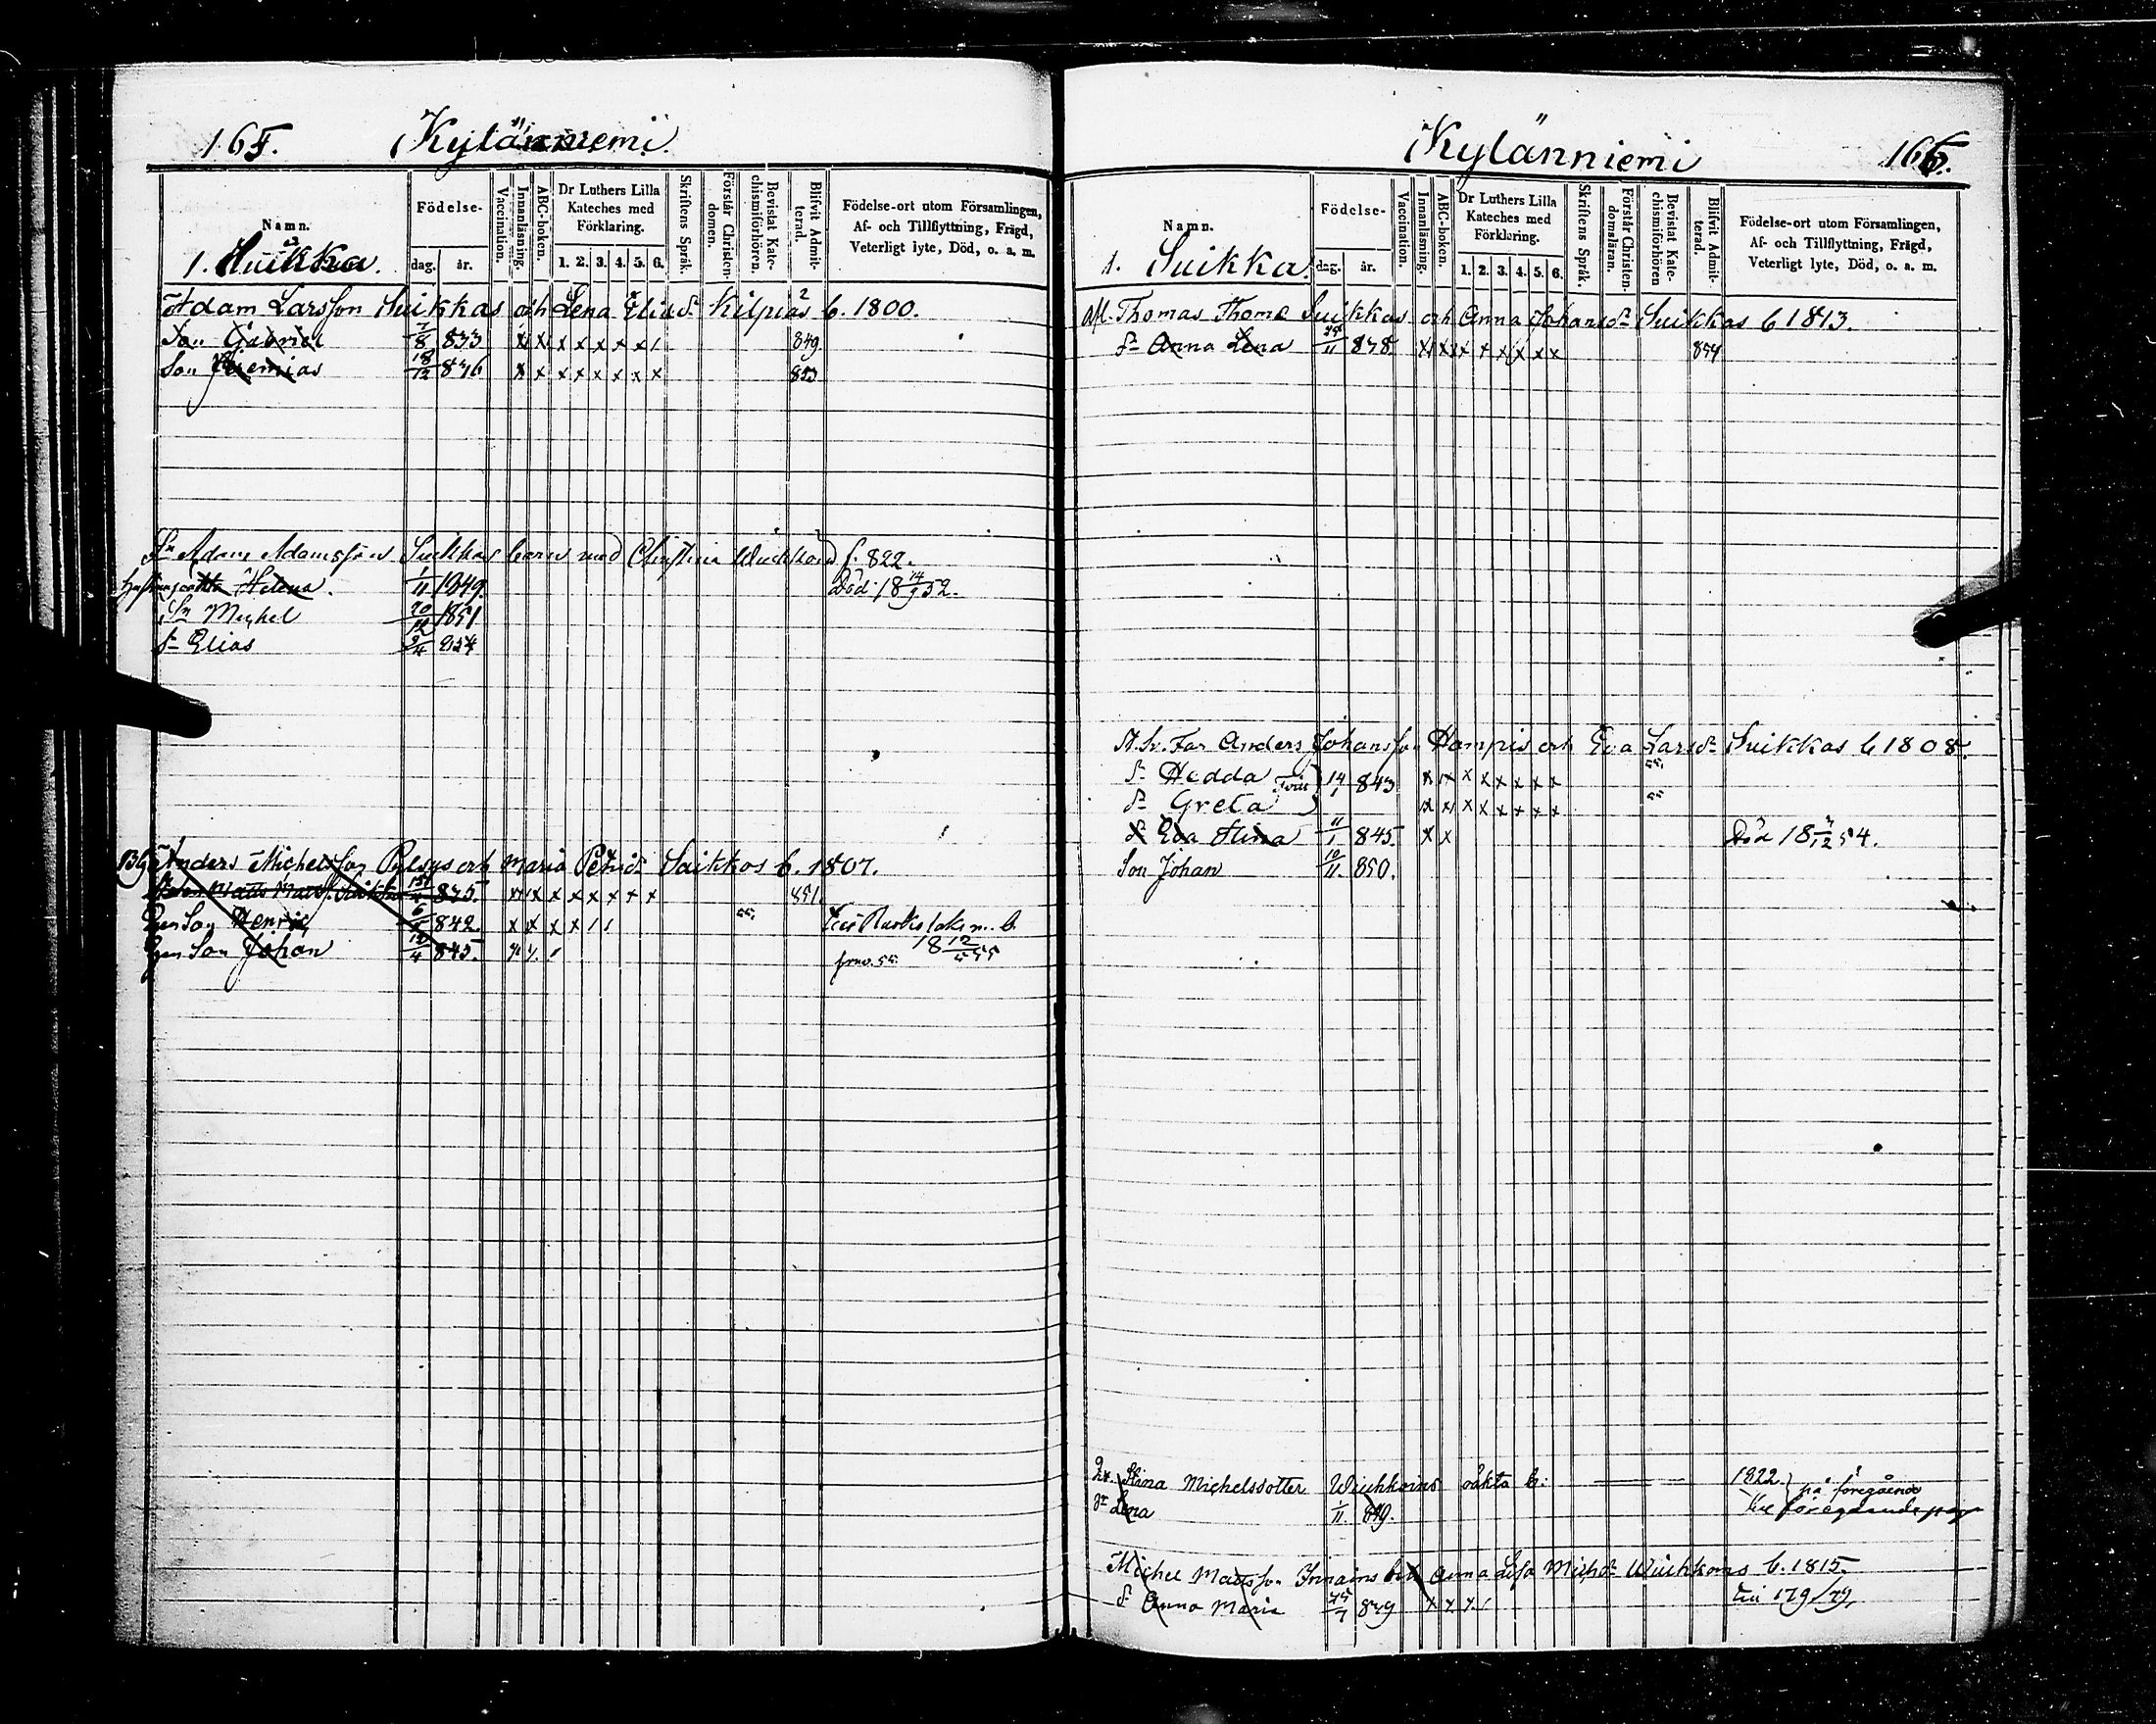 165. Kylänniemi
Namn.
Födelse-
dag. år.
Vaccination.
Innanläsning.
ABC-boken.
Dr Luthers Lilla
Kateches med
Förklaring.
1. 2. 3. 4. 5. 6.
Skriftens Språk.
Förstår Christen-
domen.
Bevistat Kate-
chismiförhören.
Blifvit Admit-
terad.
Födelse-ort utom Församlingen,
Af- och Tillflyttning, Frägd,
Veterligt lyte, Död, o. a. m.
1. Suikka.
Adam Larsson Suikkas och Lena Eliæd:r Kilpiäs b. 1800.
Son Gabriel 7/8 833 x x x x x x x / 849
Son Jeremias 18/12 836 x x x x x x x x 853
Sn Adam Adamsson Suikkas barn med Christina Wuikkoin f. 822.
Helena. 1/11 1849. Död 18 14/9 52.
Sn Michel 1851
Sn Elias 854
Anders Michelsson Pylsys och Maria Petrid:r Suikkos b. 1807.
Matts Matss. Suikka 835. x x x x x x x x 851.
Son Henric 6 842. x x x x / / 55
18 12/5 55
Son Johan 12/4 845. x x / 55
Kylänniemi 166.
Namn.
Födelse-
dag. år.
Vaccination.
Innanläsning.
ABC-boken.
Dr Luthers Lilla
Kateches med
Förklaring.
1. 2. 3. 4. 5. 6.
Skriftens Språk.
Förstår Christen-
domsläran.
Bevistat Kate-
chismiförhören
Blifvit Admit-
terad.
Födelse-ort utom Församlingen,
Af- och Tillflyttning, Frägd,
Veterligt lyte, Död, o. a. m.
1. Suikka.
Afl. Thomas Thoms. Suikkas och Anna Johansd:r Suikkas b 1813.
d:r Anna Lena 838. x x x x x x x x 854
Anders Johansson Hampis och Eva Larsd:r Suikkas b 1808.
d:r Hedda 14/1 843 x x x x x x x x 55
d:r Greta x x x x x x x x 55
d:r Eva Stina 11/1 845. x x Död 18 /12 54.
Son Johan 10/11 850.
Stina Michelsdotter Wuikkoins oäkta b: 1822.
på föregående
d:r Lena 1/11 849. föregående pag
Michel Mattsson Innains och Anna Lisa Michd:r Wuikkoins b. 1815.
d:r Anna Maria 839 x x x / 179/